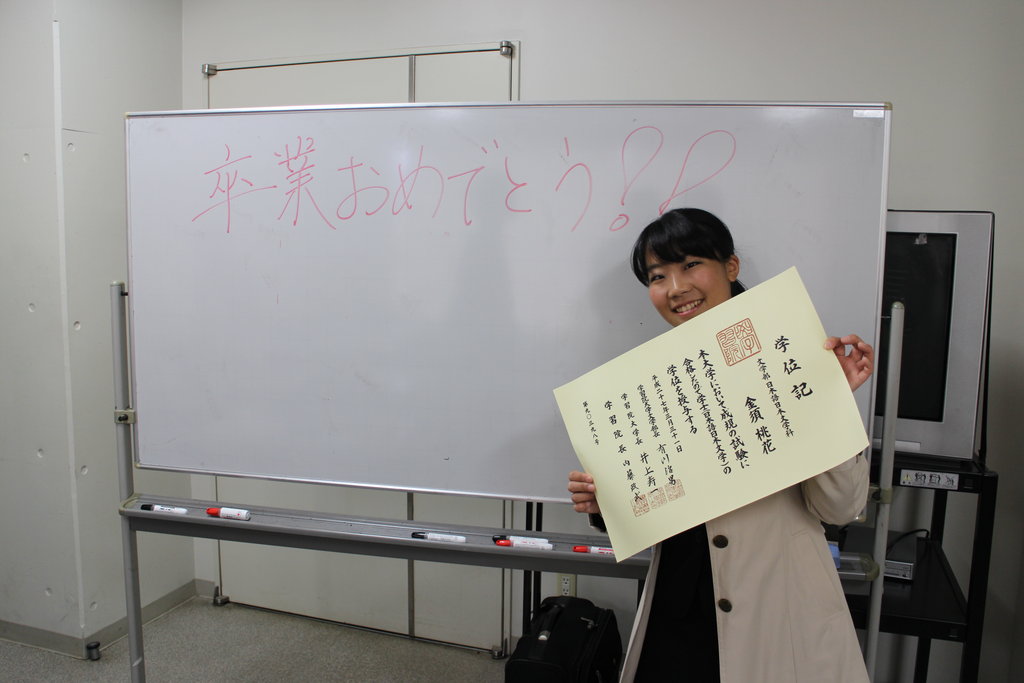 卒業おめでとう!!
学位記
文学部日本語日本文学科
金須 桃花
本大学において成規の試験に
合格したので学士(日本語日本文学)の
学位を授与する
平成二十七年三月三十一日
学習院大学文学部長
学習院大学長 井上寿一
学習院長 内藤政武
第九〇三九八号